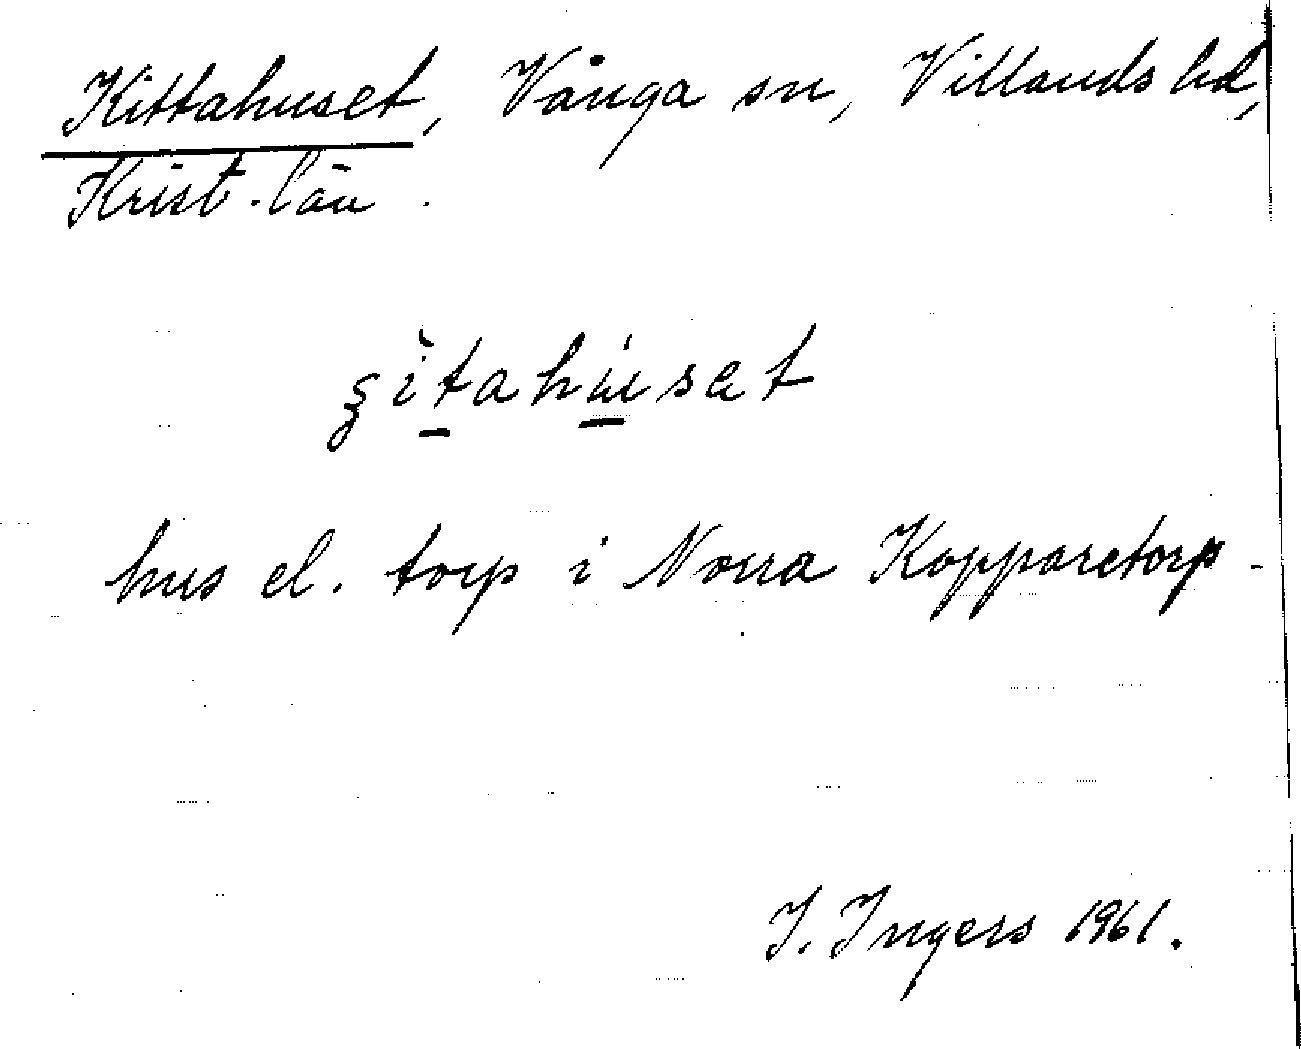 Kittahuset, Vånga sn, Villands hd,
Krist. län.
ʂìtahúsat
hus el. torp i Norra Kopparetorp.
I. Ingers 1961.